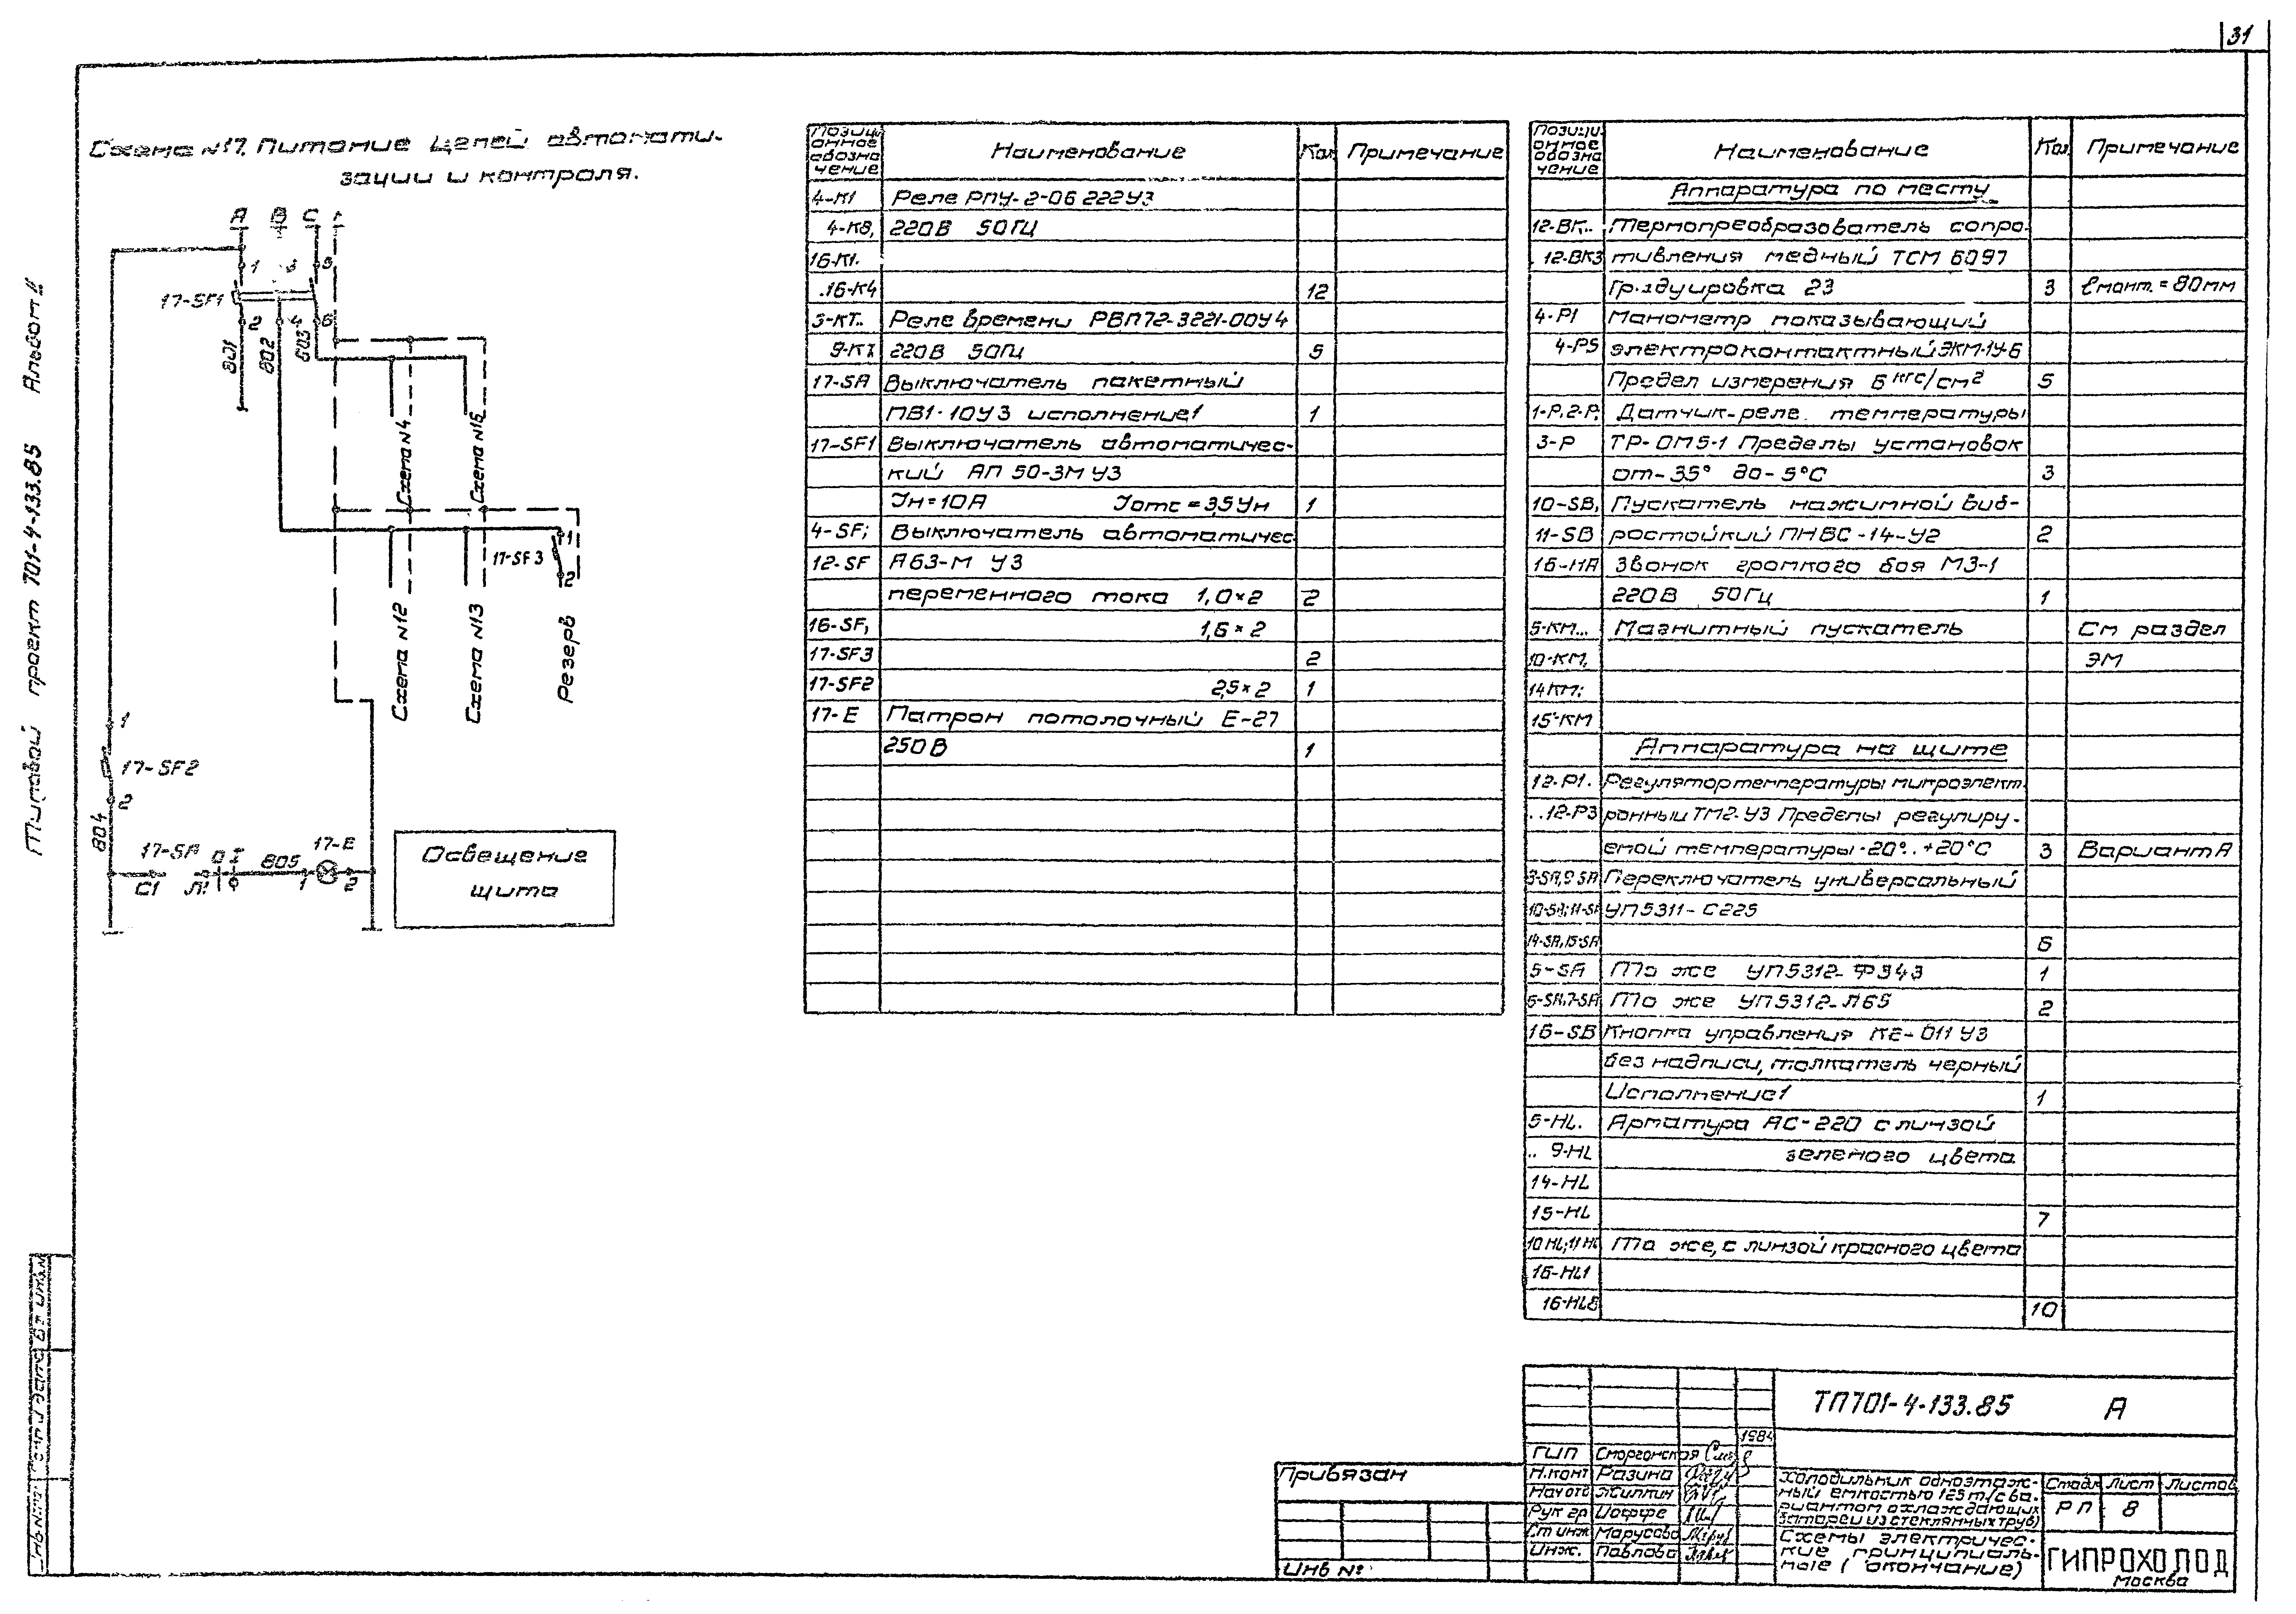 31
Схема №17. Питание цепей автомати-
зации и контроля.
A B C
1 3 5
17-SF1
2 4 6
801 802 603
Схема №4
Схема №16
17-SF3
1
2
Схема №12
Схема №13
Резерв
1
17-SF2
2
804
17-SA 0 I 805 17-E
C1 Л1 1 2
Освещение
щита
Типовой проект 701-4-133.85 Альбом II
Позици
онное
обозна
чение
Наименование Кол Примечание
4-К1 Реле РПУ-2-06 222У3
4-К8, 220В 50Гц
16-К1.
.16-К4 12
3-КТ.. Реле времени РВП72-3221-00У4
9-КТ 220В 50Гц 5
17-SA Выключатель пакетный
ПВ1-10У3 исполнение1 1
17-SF1 Выключатель автоматичес-
кий АП 50-3М У3
Iн=10А Iотс=3,5Iн 1
4-SF; Выключатель автоматичес
12-SF А63-М У3
переменного тока 1,0×2 2
16-SF, 1,6×2
17-SF3 2
17-SF2 2,5×2 1
17-E Патрон потолочный Е-27
250В 1
Позици
онное
обозна
чение
Наименование Кол. Примечание
Аппаратура по месту
12-ВК.. Термопреобразователь сопро-
. 12-ВК3 тивления медный ТСМ 6097
Градуировка 23 3 ℓмонт.=80мм
4-Р1 Манометр показывающий
4-Р5 электроконтактный ЭКМ-1У-6
Предел измерения 6 кгс/см² 5
1-Р,2-Р, Датчик-реле температуры
3-Р ТР-ОМ5-1 Пределы установок
от-35° до-5°С 3
10-SB, Пускатель нажимной виб-
11-SB ростойкий ПНВС-14-У2 2
16-НА Звонок громкого боя МЗ-1
220В 50Гц 1
5-КМ... Магнитный пускатель См раздел
10-КМ, ЭМ
14КМ;
15-КМ
Аппаратура на щите
12-Р1. Регулятор температуры микроэлект
..12-Р3 ронный ТМ2-У3 Пределы регулиру-
емой температуры-20°..+20°С 3 Вариант А
3-SA,9-SA Переключатель универсальный
10-SA;11-SA УП5311-С225
14-SA,15-SA 6
5-SA То же УП5312-Ф343 1
6-SA,7-SA То же УП5312-Л65 2
16-SB Кнопка управления КЕ-011 У3
без надписи, толкатель черный
Исполнение1 1
5-HL. Арматура АС-220 с линзой
.. 9-HL зеленого цвета
14-HL
15-HL 7
10 HL;11 HL То же, с линзой красного цвета
16-HL1
16-HL8 10
ТП701-4-133.85 А
1984
ГИП Сморгонская
Н.конт Разина
Нач отд Жиллин
Рук гр Иоффе
Ст инж Марусова
Инж. Павлова
Холодильник одноэтаж-
ный емкостью 125 т/с ва-
риантом охлаждающих
батареи из стеклянных труб)
Стадия Лист Листов
РП 8
Схемы электричес-
кие принципиаль-
ные (окончание)
ГИПРОХОЛОД
Москва
Привязан
Инв №